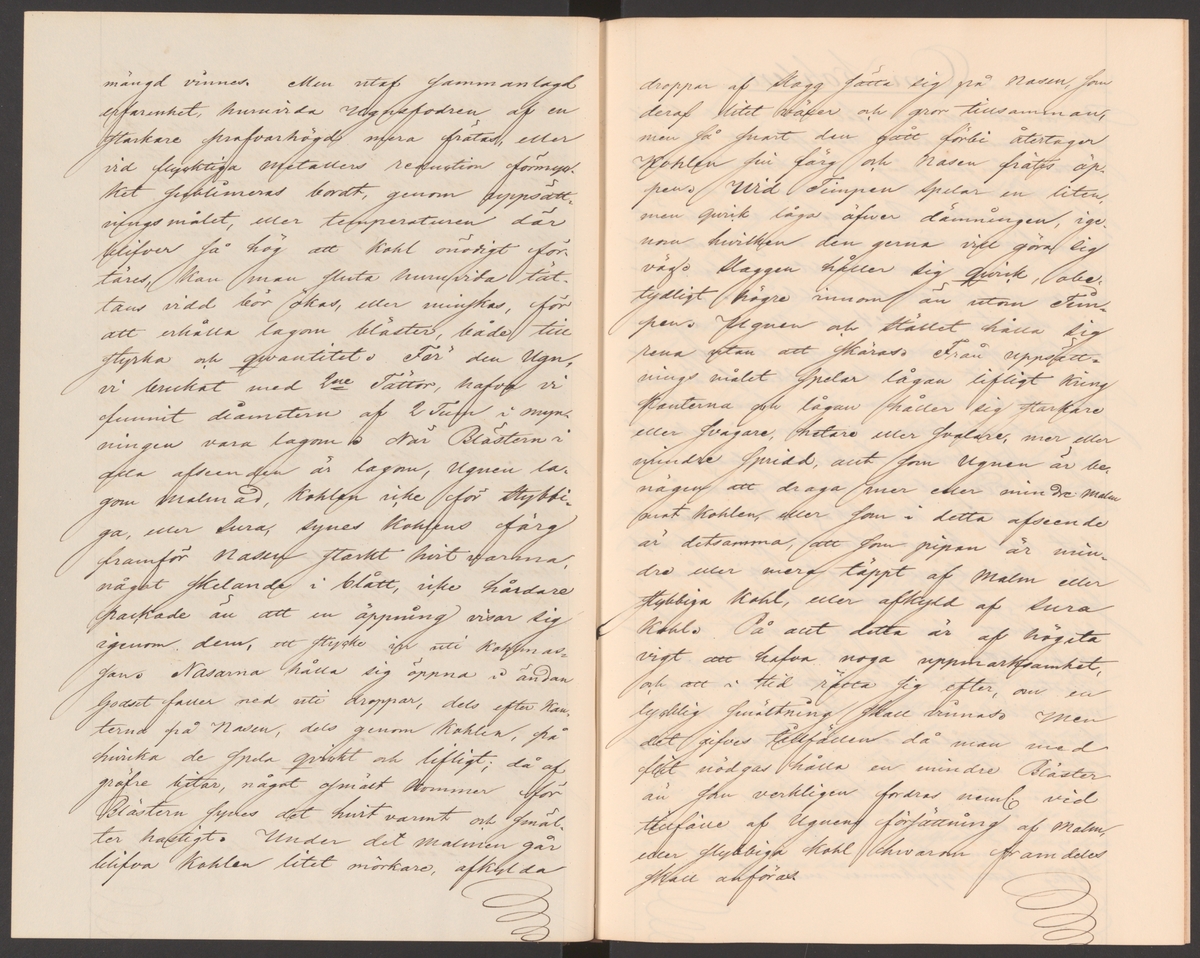 mängd vinnes. Men utaf sammanlagd
erfarenhet, huruvida Uggnsfodren af en
starkare hrafvarhögd mera frätas, eller
vid flycktiga Metallers reduction förmyc-
ket sublimeras bordt, genom uppsätt-
ningsmålet, eller temperaturen där
blifver så hög att Kohl onödigt för-
täres, kan man sluta huruvida tät-
tans vidd bör ökas, eller minskas, för
att erhålla lagom bläster, både till
styrka och qwantitet. För den Ugn,
vi brukat med 2ne Tättor, hafva vi
funnit diametern af 2 Tum i myn-
ningen vara lagom. När Blästern i
alla afseenden är lagom, Ugnen la-
gom Malmad, Kohlen icke för stybbi-
ga, eller Sura, synes Kohlens färg
framför Nasen starkt hvit varma,
något skelande i blått, icke hårdare
packade än att en öppning visar sig
igenom dem, ett stycke in uti Kohlmas-
san. Nasarna hålla sig öppna i ändan
Godset faller ned uti droppar, dels efter Kan-
terna på Nasen, dels genom Kohlen, på
hvilka de spela qvickt och lifligt; då af
gröfre bitar, något osmält kommer för
Blästern synes det hvit varmt och smäl-
ter hastigt. Under det Malmen går
blifva Kohlen litet mörkare, afkylda
droppar af Slagg sätta sig på Nasen, som
deraf litet växer och gror tillsamman,
men så snart den gått förbi återtager
Kohlen sin färg och Nasen frätes öp-
pen. Wid Timpen spelar en liten
men qvick låga öfwer dämningen, ige-
nom hwilken den gerna vill göra sig
väg. Slaggen håller sig qvick, obe-
tydligt högre innom än utom Tim-
pen. Ugnen och Stället hålla sig
rena utan att skäras. Från uppsätt-
nings målet spelar lågan lifligt kring
Kanterna och lågan håller sig starkare
eller svagare, hetare eller svalare, mer eller
mindre spridd, allt som Ugnen är be-
nägen att draga mer eller mindre Malm
mot Kohlen, eller som i detta afseende
är detsamma, allt som pipan är min-
dre eller mera täppt af Malm eller
stybbiga Kohl, eller afkyld af Sura
Kohl. På allt detta är af högsta
vigt att hafva noga uppmärksamhet,
och att i tid rätta sig efter, om en
lycklig smältning skall vinnas. Men
det gifves tillfällen då man med
flit nödgas hålla en mindre Bläster
än som verkligen fordras neml. vid
tillfälle af Ugnens försättning af Malm,
eller stybbiga Kohl hwarom framdeles
skall anföras.